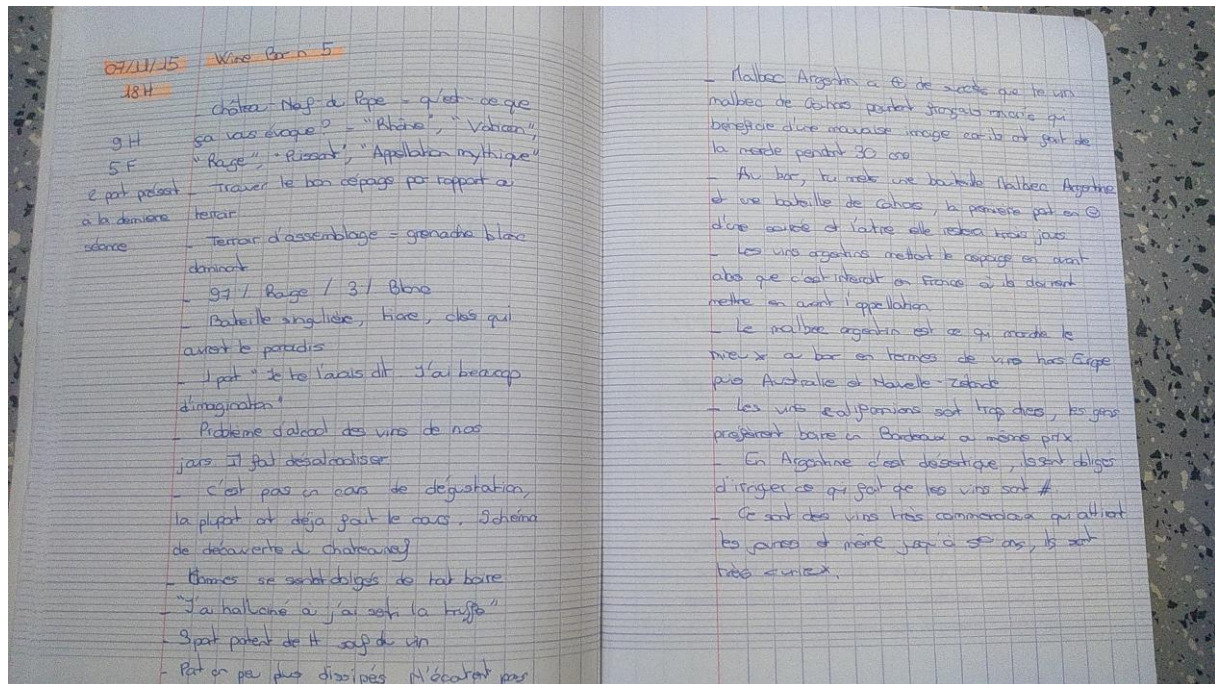 07/11/15 Wine Bar n 5
18H
châtea-Neuf-du Pape - qu'est-ce que
9H sa vous évoque? - "Rhône", "Vatican",
5F "Rouge", "Puissant", "Appellation mythique"
2 part présent - Trouver le bon cépage par rapport au
à la dernière terroir
séance - Terroir d'assemblage = grenache blanc
dominant
- 97% Rouge / 3% Blanc
- Bouteille singulière, tiare, clés qui
ouvrent le paradis
- 1 part "Je te l'avais dit J'ai beaucoup
d'imagination"
- Problème d'alcool des vins de nos
jours Il faut désalcooliser
- C'est pas un cours de dégustation,
la plupart ont déjà fait le cours. Schéma
de découverte du chateauneuf
- Hommes se sentent obligés de tout boire
- "J'ai halluciné où j'ai senti la truffe"
- 3 part parlent de # sauf du vin
- Part un peu plus dissipés N'écoutent pas
- Malbec Argentin a ⊕ de succès que le vin
malbec de Cahors pourtant français mais qui
bénéficie d'une mauvaise image car ils ont fait de
la merde pendant 30 ans
- Au bar, tu mets une bouteille Malbec Argentine
et une bouteille de Cahors, la première part en ⊖
d'une soirée et l'autre elle restera trois jours
- Les vins argentins mettent le cépage en avant
alors que c'est interdit en France où ils doivent
mettre en avant l'appellation
- Le malbec argentin est ce qui marche le
mieux au bar en termes de vins hors Europe
puis Australie et Nouvelle-Zélande
- Les vins californiens sont trop chers, les gens
préfèrent boire un Bordeaux au même prix
- En Argentine c'est désertique, ils sont obligés
d'irriguer ce qui fait que les vins sont #.
- Ce sont des vins très commerciaux qui attirent
les jeunes et même jusqu'à 50 ans, ils sont
très curieux.